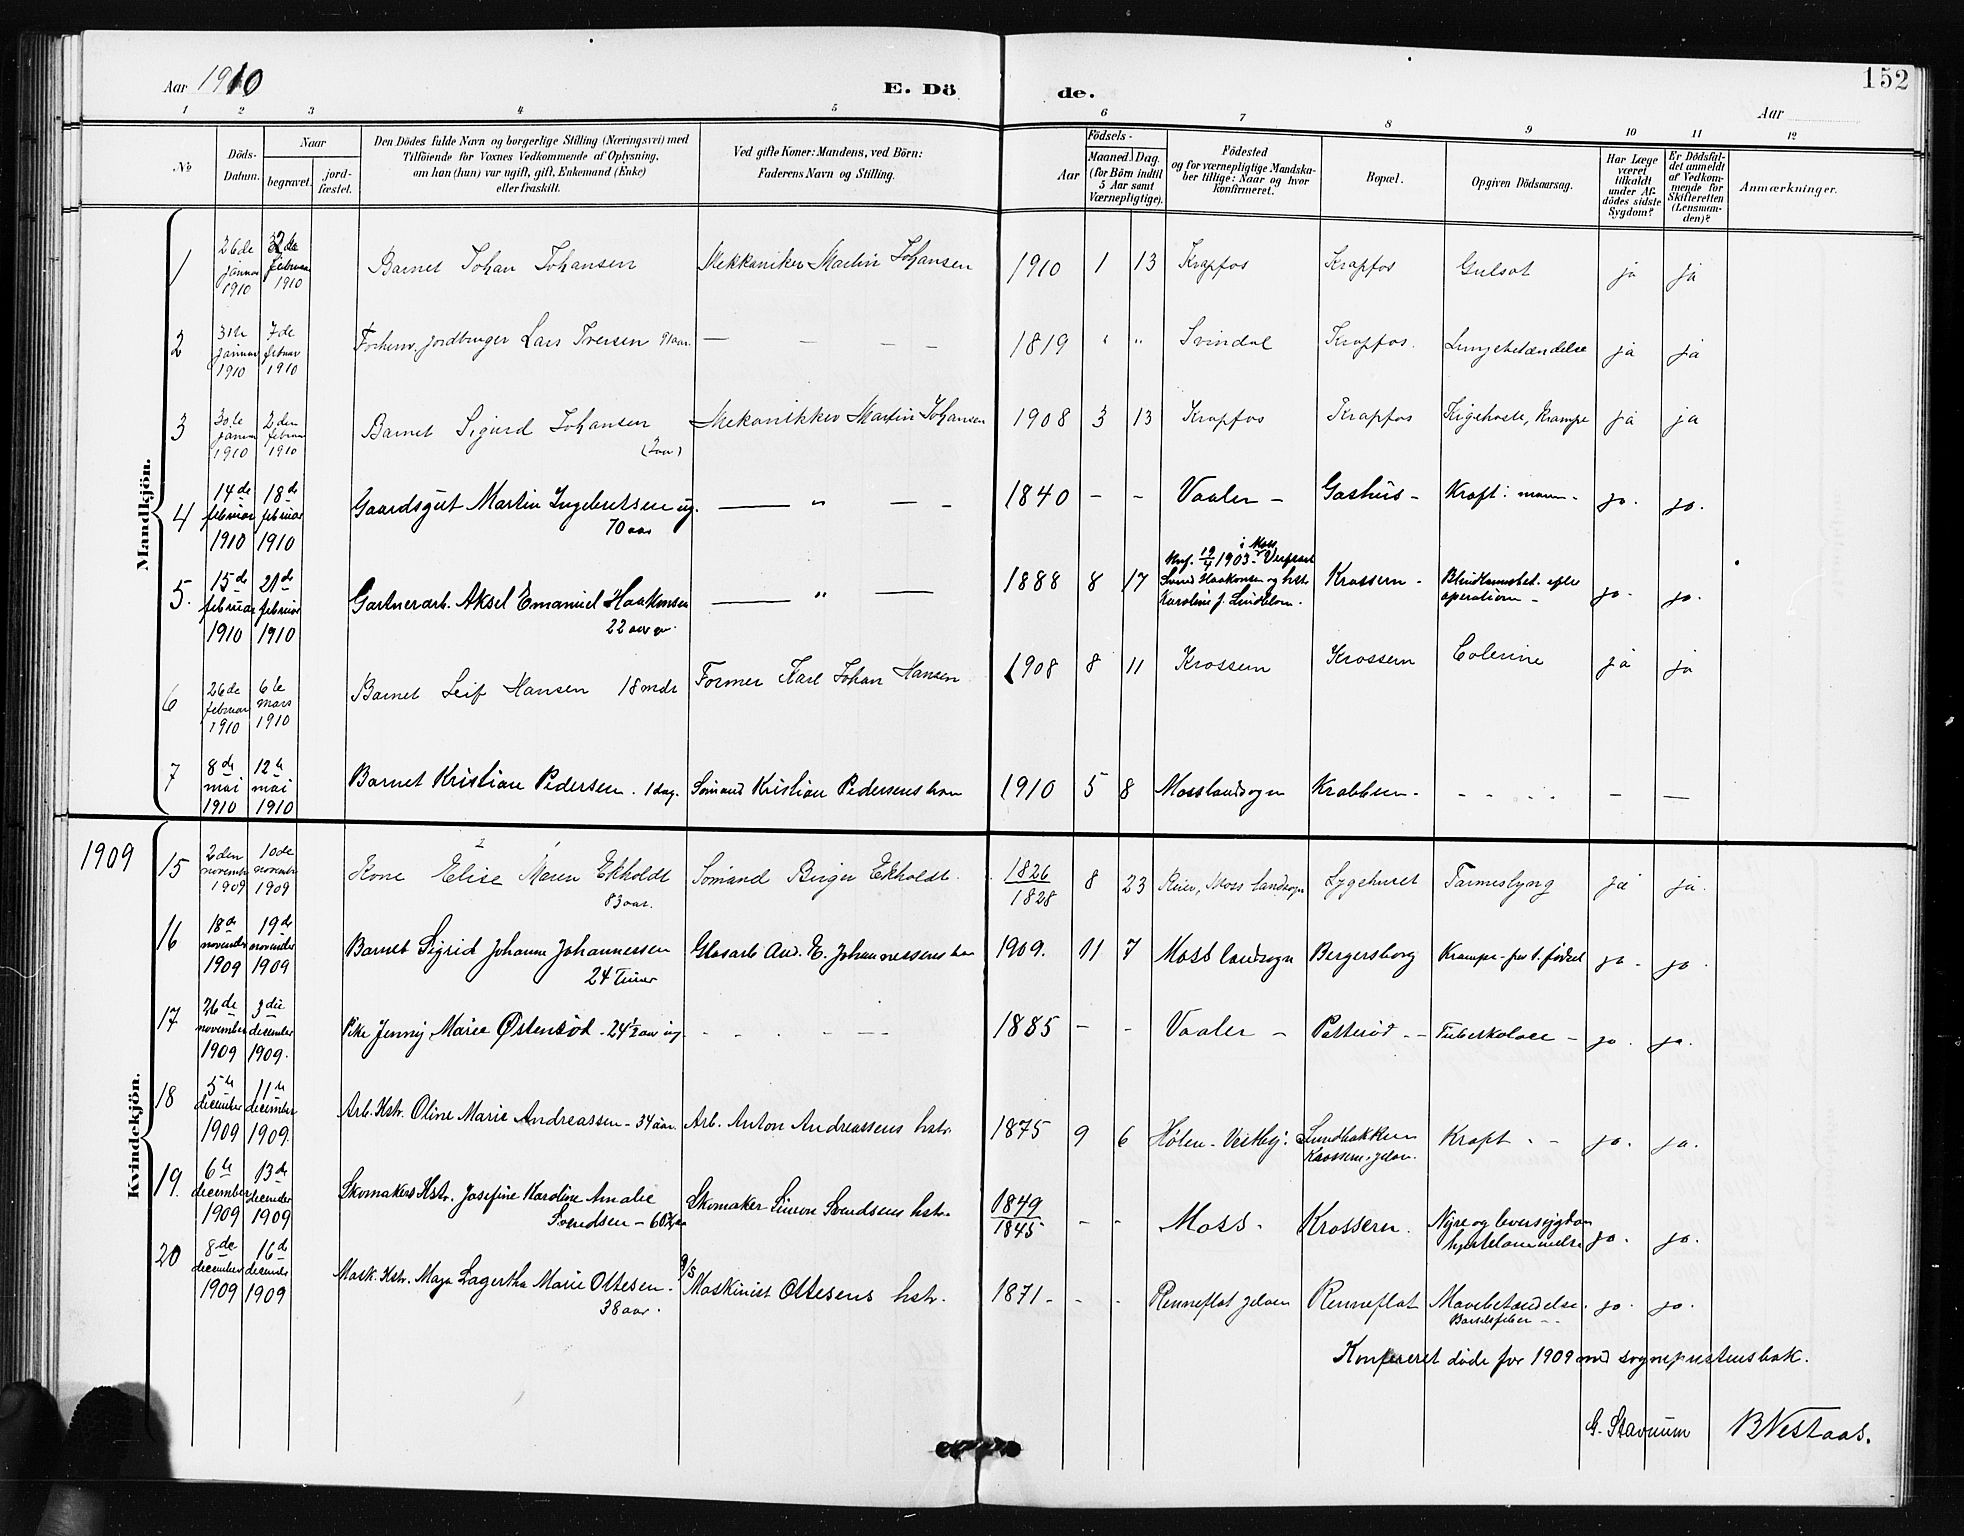 Aar 1910
E. Dö
de.
152
Aar
1 2 3 4 5 6 7 8 9 10 11 12
No
Döds-Datum.
Naar
begravet.
jord-fæstet.
Den Dödes fulde Navn og borgerlige Stilling (Næringsvei) med
Tilföiende for Voxnes Vedkommende af Oplysning,
om han (hun) var ugift, gift, Enkemand (Enke)
eller fraskilt.
Ved gifte Koner: Mandens, ved Börn:
Faderens Navn og Stilling.
Födsels-
Aar
Maaned. Dag.
(for Börn indtil
5 Aar samt
Værnepligtige).
Födested
og for værnepligtige Mandska-
ber tillige: Naar og hvor
konfirmeret.
Bopæl.
Opgiven Dödsaarsag.
Har Læge
været
tilkaldt
under Af-
dödes sidste
Sygdom?
Er Dödsfal-
det anmeldt
af Vedkom-
mende for
Skifteretten
(Lensman-
den)?
Anmærkninger.
Mandkjön.
1 26de januar 1910 februar 1910 Barnet Johan Johansen Mekkaniker Martin Johansen 1910 1 13 Krapfos Krapfos Gulsot ja ja
2 31te januar 1910 7de februar 1910 Forhenv. jordbruger Lars Iversen 91 aar. — — — — 1819 " " Svindal Krapfos. Lungebetændelse ja ja
3 30te januar 1910 2den februar 1910 Barnet Sigurd Johansen (2 aar) Mekanikker Martin Johansen 1908 3 13 Krapfos Krapfos Kighoste, Krampe ja ja
4 14de februar 1910 18de februar 1910 Gaardsgut Martin Ingebretsen ug. 70 aar — " — - 1840 - - Vaaler - Gashus - Kræft i maven - ja. ja.
5. 15de februar 1910 21de februar 1910 Gartnerarb. Aksel Emanuel Haakonsen 22 aar — " — - 1888 8 17 Knf. 19/4 1903 i Moss Haakonsen og hst. Karoline f. Lindblom. Krossern - Blindtarmsbet. efter operation - ja. ja.
6 26de februar 1910 6te mars 1910 Barnet Leif Hansen 18 mdr Former Karl Johan Hansen 1908 8 11 Krossern Krossern Colerine ja ja
7 8de mai 1910 12te mai 1910 Barnet Kristian Pedersen. 1 dag. Sømand Kristian Pedersens barn 1910 5 8 Moss landsogn Krabbern - - - - - — —
1909
Kvindekjön.
15 2den novembr 1909 10de novembr 1909 Kone Elise Maren Ekholdt 83 aar. Sømand Birger Ekholdt. 1826/1828 8 23 Reier, Moss landsogn Lygehuset Tarmeslyng ja ja.
16 18de november 1909 19de november 1909 Barnet Sigrid Johanne Johannessen 24 Timer Glasarb. And. E. Johannessens barn 1909. 11 7 Moss landsogn Bergersborg Krampe - før t. fødsel ja - ja.
17 26de november 1909 3die december 1909. Pike Jenny Marie Østenrød - 24½ aar ug - - - — — 1885 - - Vaaler - Patterød - - Tuberkolose - ja. ja.
18 5te december 1909 11te december 1909. Arb. Hstr. Oline Marie Andreassen - 34 aar. Arb. Anton Andreassens hstr. 1875 9 6 Hølen - Vestby. Sundbakken Krossern. jeløen. Kræft - - ja. ja.
19. 6te december 1909 13de december 1909 Skomakers Hstr. Josefine Karoline Amalie Svendsen - 60 aar Skomaker Simon Svendsens hstr. 1849/1845 - - Moss. Krossern. Nyre og leversygdom hjertelammelse ja. ja.
20 8de december 1909 16de december 1909 Mask. Hstr. Maja Lagertha Marie Ottesen. 38 aar. D/S Maskinist Ottesens hstr. 1871 - - - Renneflot jeløen Renneflot Mavebetændelse. Barselfeber - - ja. ja.
Konfereret døde for 1909 med sogneprestens bok.
G. Stavnum BNestaas.